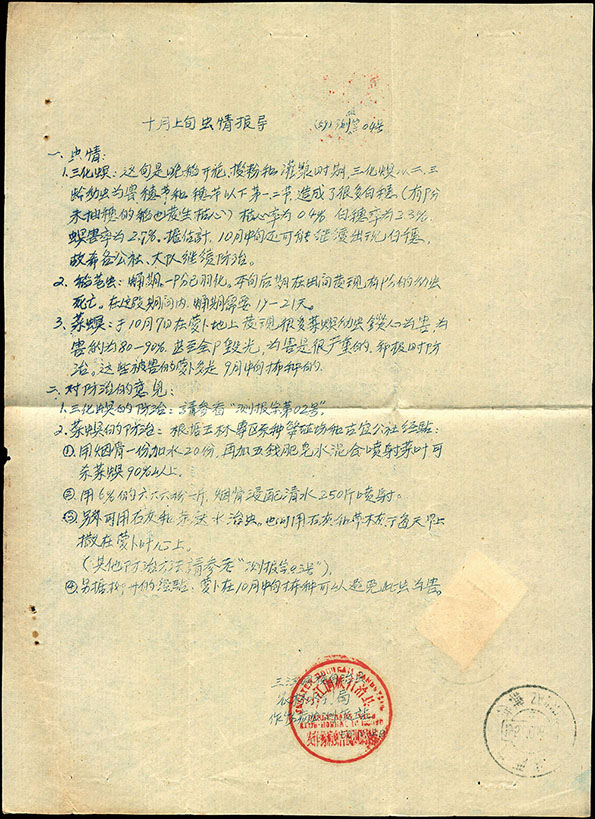 十月上旬虫情报导 (59)测字04号
一、虫情:
1.三化螟:这旬是晚稻开花、授粉和灌浆时期,三化螟以二、三
龄幼虫为害穗节和穗节以下第一、二节,造成了很多白穗(有部分
未抽穗的稻也发生枯心)枯心率为0.4% 白穗率为2.3%.
螟害率为2.7%.据估计,10月中旬还可能继续出现白穗,
故希各公社、大队继续防治。
2.稻苞虫:蛹期.一部分已羽化,本旬后期在田间发现有部分的幼虫
死亡。在这段期间内,蛹期需要19—21天。
3.菜螟:于10月9日在萝卜地上发现很多菜螟幼虫钻心为害,为
害的为80—90%.甚至全部毁光,为害是很严重的,积极时防
治。这些被害的萝卜是9月中旬播种的。
二、对防治的意见:
1.三化螟的防治:請参看"测报字第02号"。
2.菜螟的防治:根据玉林專区良种繁殖场和 公社经驗:
①用烟骨一份加水20份,再加五钱肥皂水混合喷射菜叶可
杀菜螟90%以上.
②用6%的六六六粉一斤,烟骨浸配清水250斤喷射。
③另外可用石灰和茶麸水治虫。也可用石灰和草木灰 早上
撒在萝卜叶心上。
(其他防治方法請参看"测报字03号")
④另据柳州的经驗,萝卜在10月中旬播种可以避免此虫为害。
三江
农 局
作 站